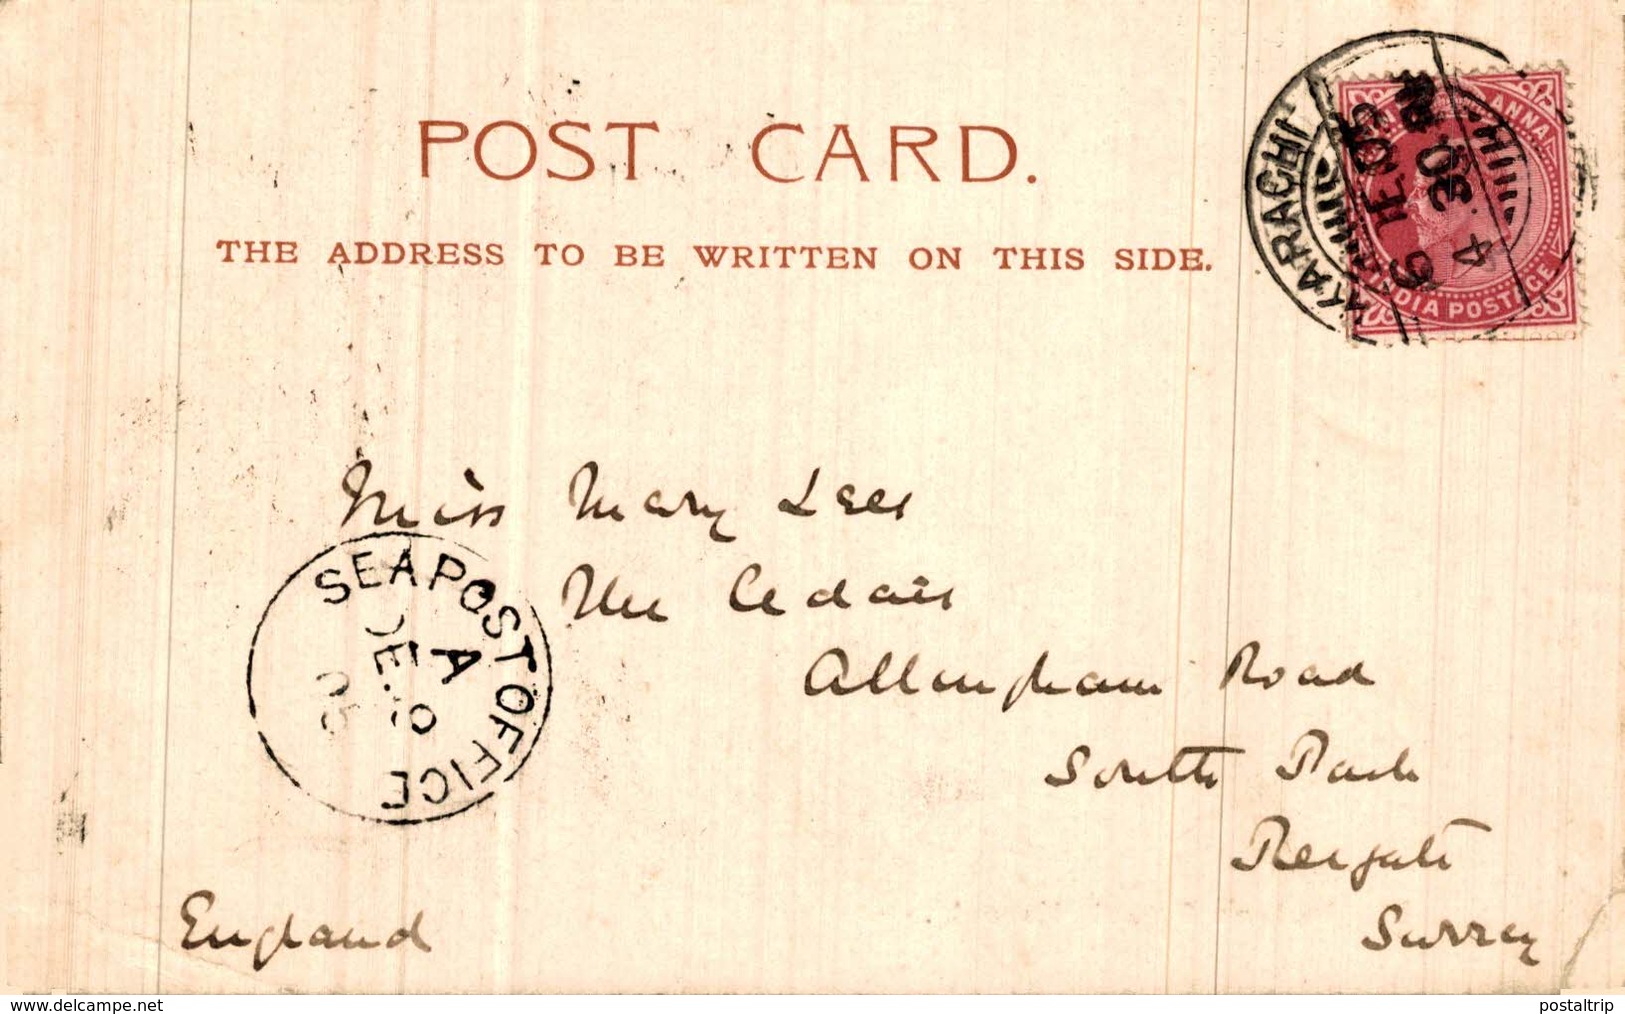 POST CARD.
THE ADDRESS TO BE WRITTEN ON THIS SIDE.
KARACHI
6 DE 05
4 30
ONE ANNA
INDIA POSTAGE
Miss Mary Lees
The Cedars
Allingham Road
South Park
Reigate
Surrey
England
SEA POST OFFICE
A
DE
05
www.delcampe.net
postaltrip